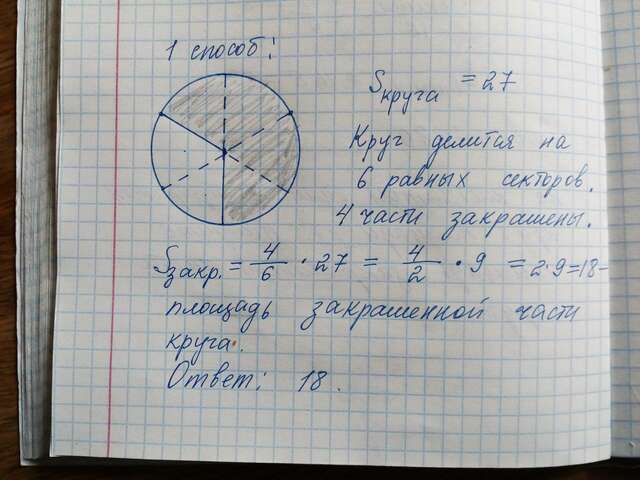 1 способ:
Sкруга = 27
Круг делится на
6 равных секторов.
4 части закрашены.
Sзакр. = 4/6 · 27 = 4/2 · 9 = 2·9=18-
площадь закрашенной части
круга.
Ответ: 18.